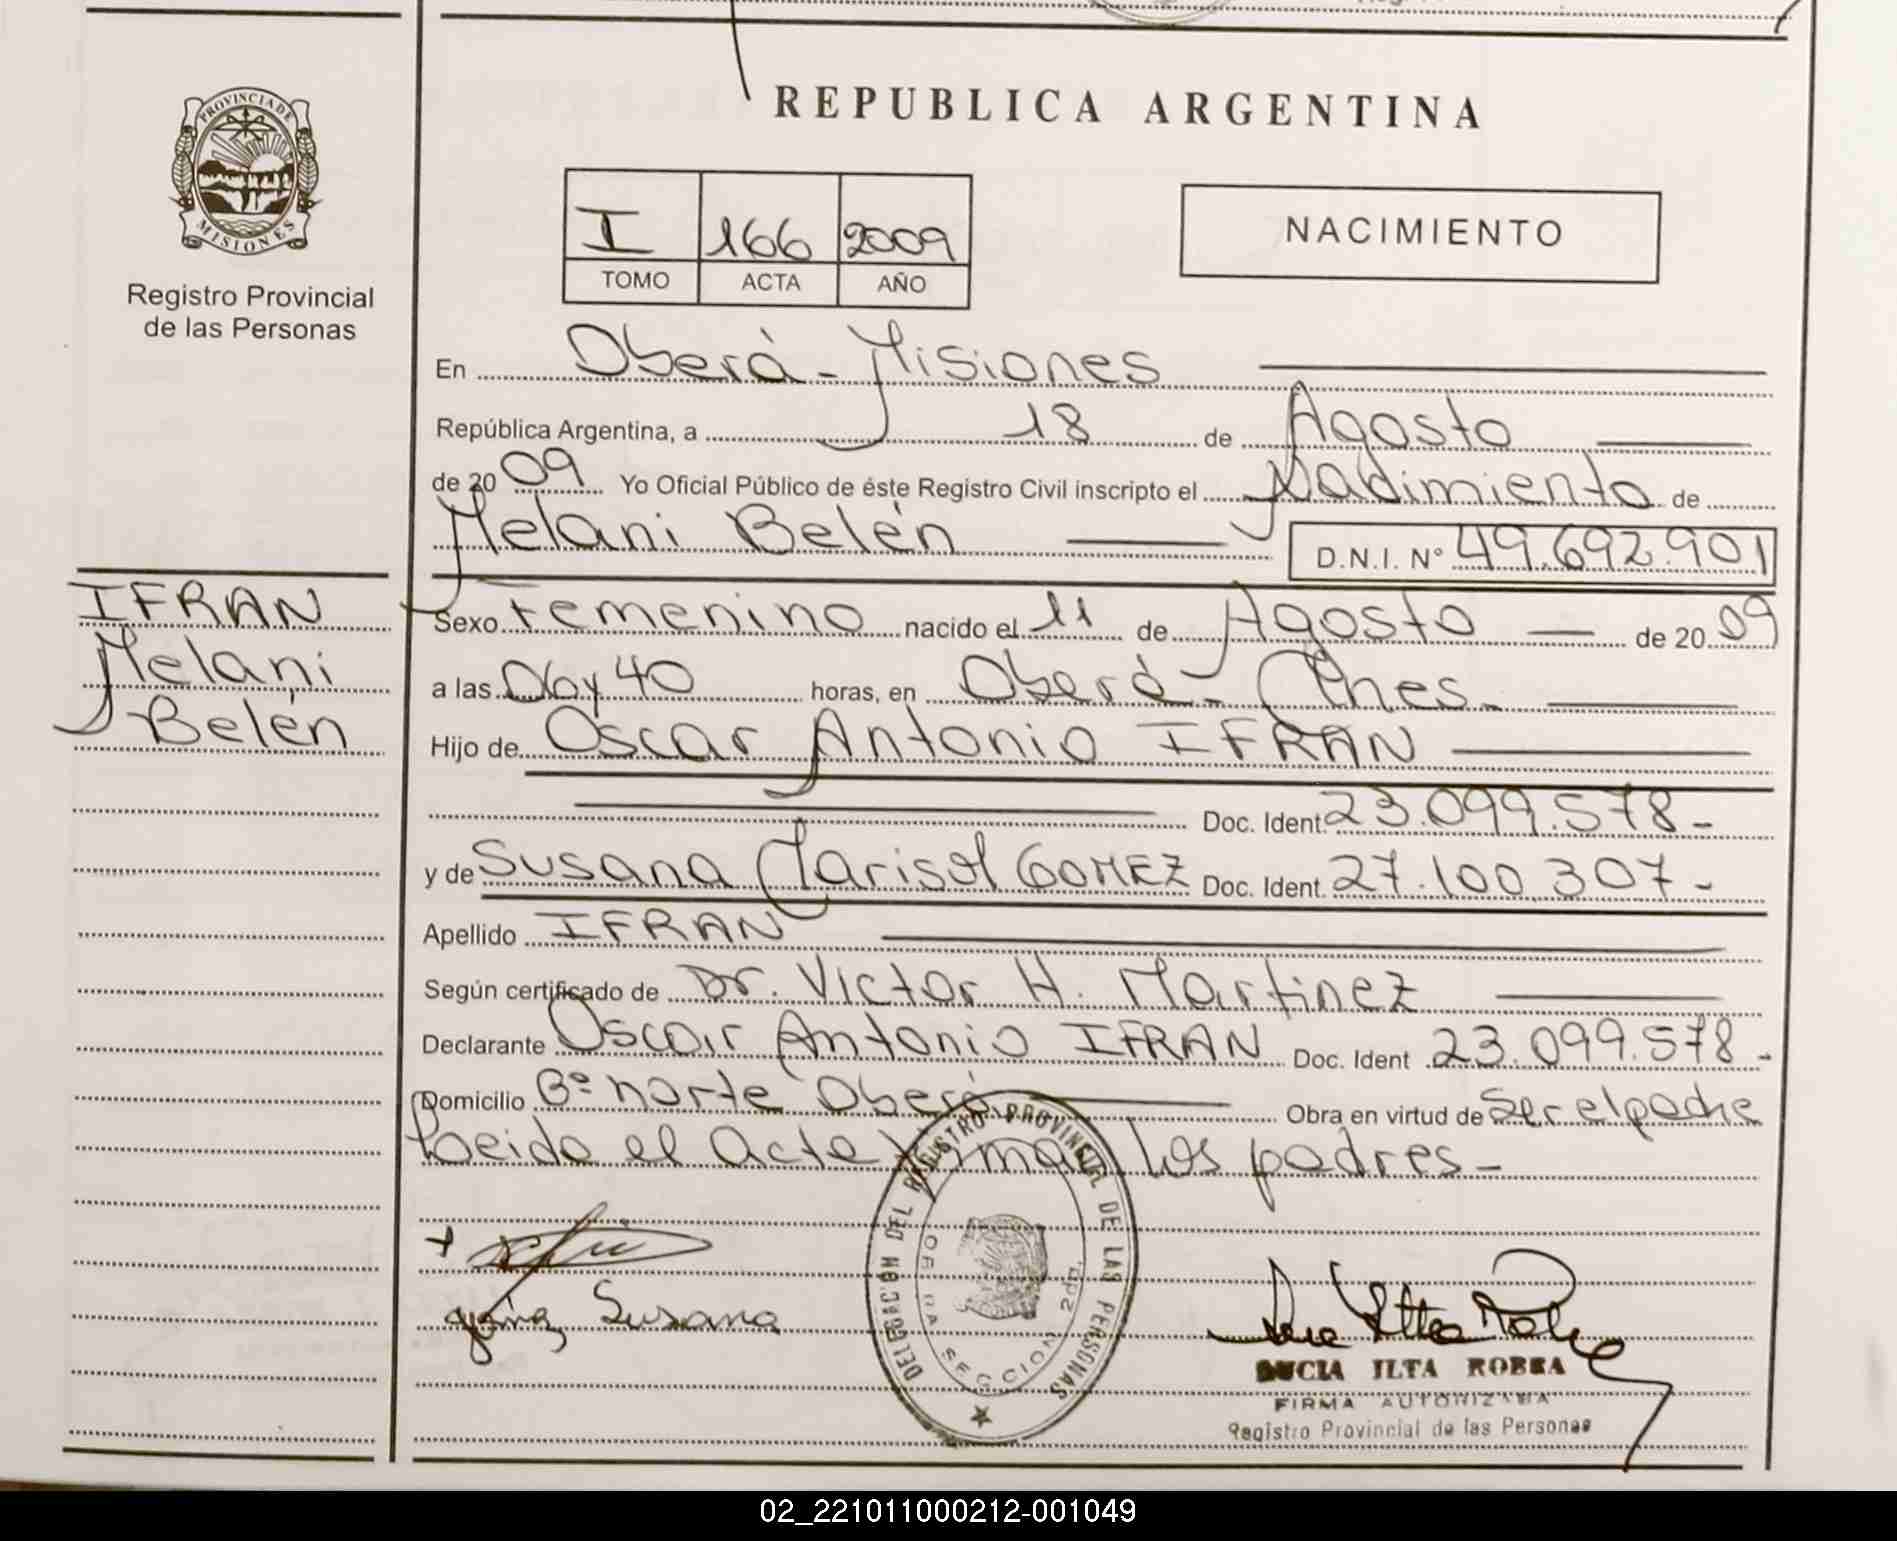 REPUBLICA ARGENTINA
PROVINCIA DE
MISIONES
Registro Provincial
de las Personas
I 166 2009
TOMO ACTA AÑO
NACIMIENTO
En Oberá - Misiones
República Argentina, a 18 de Agosto
de 2009 Yo Oficial Público de éste Registro Civil inscripto el Nacimiento de
Melani Belén D.N.I. Nº 49.692.901
IFRAN
Melani
Belén
Sexo Femenino nacido el 11 de Agosto de 2009
a las 06 y 40 horas, en Oberá - Mnes.
Hijo de Oscar Antonio IFRAN
Doc. Ident. 23.099.578-
y de Susana Marisol GOMEZ Doc. Ident. 27.100.307-
Apellido IFRAN
Según certificado de Dr. Victor H. Martinez
Declarante Oscar Antonio IFRAN Doc. Ident 23.099.578-
Domicilio Bº norte Oberá Obra en virtud de ser el padre
Leida el Acta firman los padres-
Susana
DELEGACION DEL REGISTRO PROVINCIAL DE LAS PERSONAS
OBERA SECCION 2da.
LUCIA ILTA ROBRA
FIRMA AUTORIZADA
Registro Provincial de las Personas
02_221011000212-001049